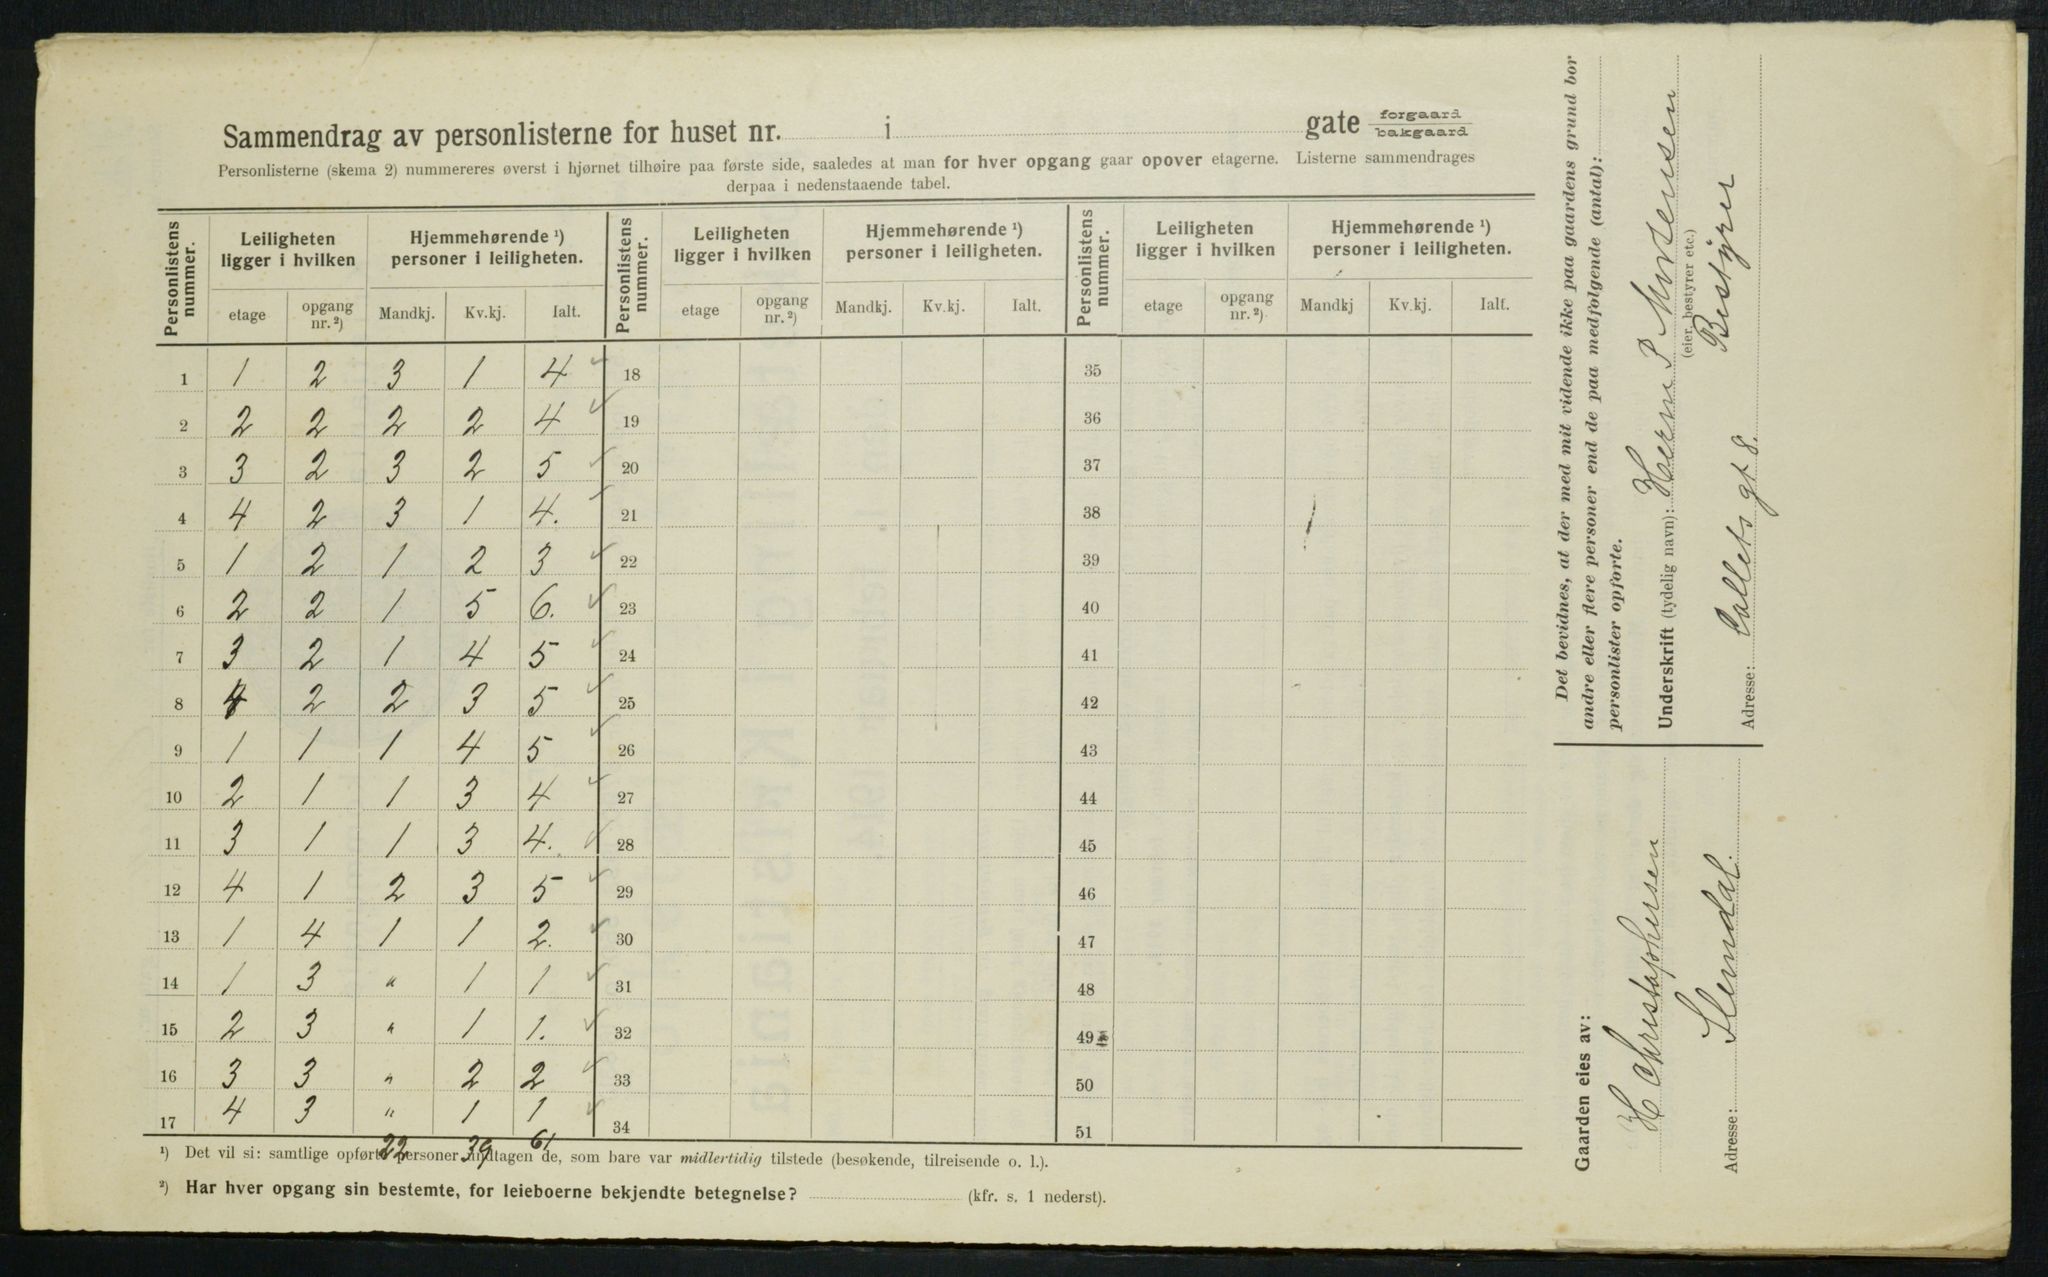 Sammendrag av personlisterne for huset nr. i gate forgaard bakgaard
Personlisterne (skema 2) nummereres øverst i hjørnet tilhøire paa første side, saaledes at man for hver opgang gaar opover etagerne. Listerne sammendrages
derpaa i nedenstaaende tabel.
Personlistens nummer. Leiligheten ligger i hvilken Hjemmehørende ¹) personer i leiligheten. Personlistens nummer. Leiligheten ligger i hvilken Hjemmehørende ¹) personer i leiligheten. Personlistens nummer. Leiligheten ligger i hvilken Hjemmehørende ¹) personer i leiligheten.
etage opgang nr. ²) Mandkj. Kv.kj. Ialt. etage opgang nr. ²) Mandkj. Kv.kj. Ialt. etage opgang nr. ²) Mandkj Kv.kj. Ialt.
1 1 2 3 1 4 ✓ 18 35
2 2 2 2 2 4 ✓ 19 36
3 3 2 3 2 5 ✓ 20 37
4 4 2 3 1 4. ✓ 21 38
5 1 2 1 2 3 ✓ 22 39
6 2 2 1 5 6. ✓ 23 40
7 3 2 1 4 5 ✓ 24 41
8 4 2 2 3 5 ✓ 25 42
9 1 1 1 4 5 ✓ 26 43
10 2 1 1 3 4 ✓ 27 44
11 3 1 1 3 4. ✓ 28 45
12 4 1 2 3 5 ✓ 29 46
13 1 4 1 1 2. ✓ 30 47
14 1 3 " 1 1 ✓ 31 48
15 2 3 " 1 1. ✓ 32 49
16 3 3 " 2 2 ✓ 33 50
17 4 3 " 1 1 ✓ 34 51
22 39 61
¹) Det vil si: samtlige opførte personer undtagen de, som bare var midlertidig tilstede (besøkende, tilreisende o. l.).
²) Har hver opgang sin bestemte, for leieboerne bekjendte betegnelse? (kfr. s. 1 nederst).
Det bevidnes, at der med mit vidende ikke paa gaardens grund bor
andre eller flere personer end de paa medfølgende (antal):
personlister opførte.
Underskrift (tydelig navn): Herm P
(eier, bestyrer etc.)
Bestyrer
Adresse: Collets gt 8.
Gaarden eies av:
H Christophersen
Adresse: Slemdal.